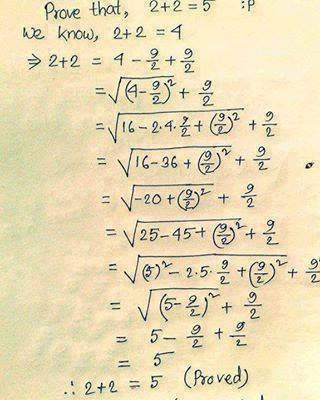 Prove that, 2+2=5 :P
We know, 2+2 = 4
⇒ 2+2 = 4 - 9/2 + 9/2
= √(4-9/2)² + 9/2
= √16-2.4.9/2+(9/2)² + 9/2
= √16-36+(9/2)² + 9/2
= √-20+(9/2)² + 9/2
= √25-45+(9/2)² + 9/2
= √(5)²-2.5.9/2+(9/2)² + 9/2
= √(5-9/2)² + 9/2
= 5 - 9/2 + 9/2
= 5
∴ 2+2 = 5 (Proved)